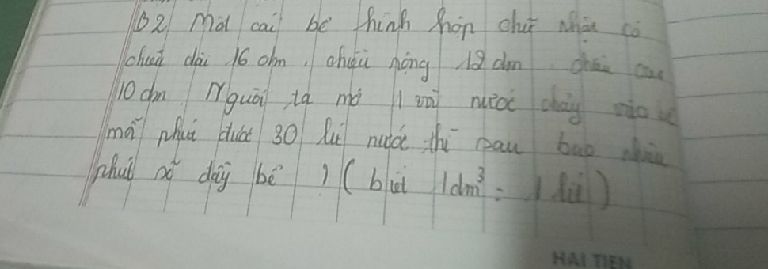 B2) Một cái bể hình hộp chữ nhật có
chiều dài 16 dm, chiều rộng 12 dm, chiều cao
10 dm. Người ta mở 1 vòi nước chảy vào bể
mỗi phút được 30 lít nước thì sau bao nhiêu
phút nó đầy bể ? ( biết 1dm³ = 1 lít )
HAI TIEN